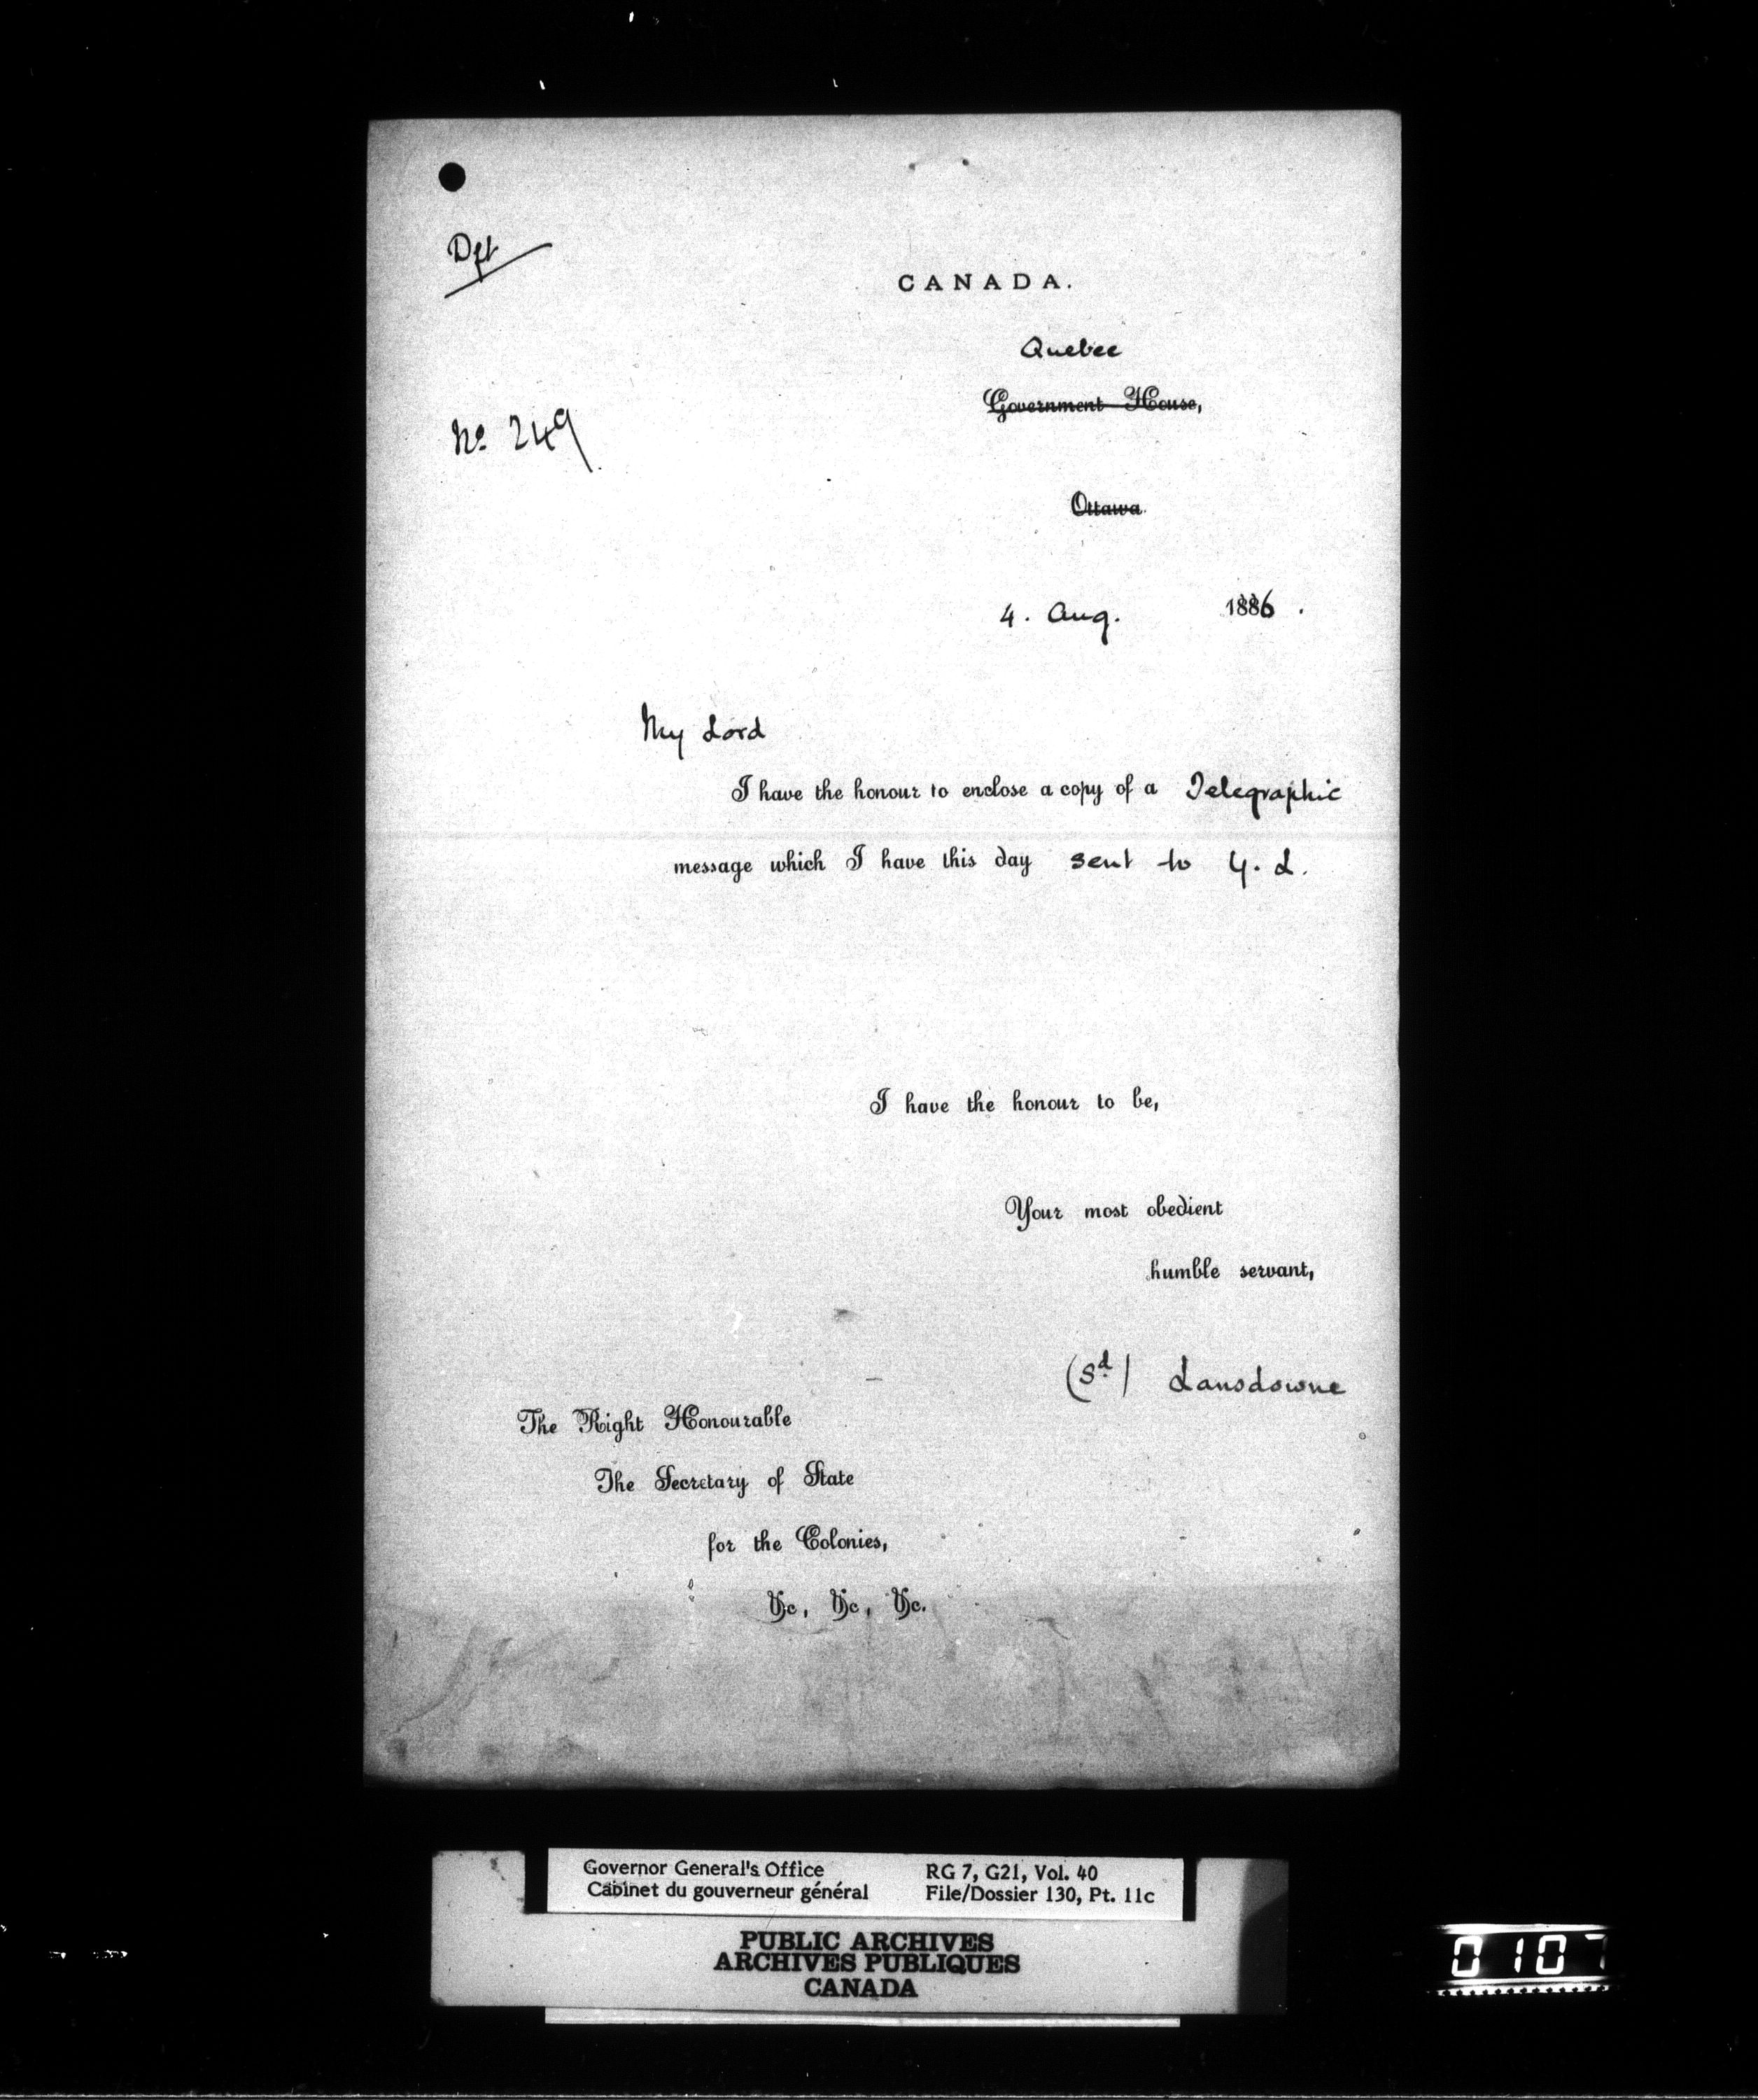 Dft
CANADA.
Quebec
Government House,
No. 249
Ottawa.
4. Aug. 1886.
My Lord
I have the honour to enclose a copy of a Telegraphic
message which I have this day sent to Y. L.
I have the honour to be,
Your most obedient
humble servant,
(Sd) Lansdowne
The Right Honourable
The Secretary of State
for the Colonies,
&c, &c, &c.
Governor General's Office RG 7, G21, Vol. 40
Cabinet du gouverneur général File/Dossier 130, Pt. 11c
PUBLIC ARCHIVES
ARCHIVES PUBLIQUES
CANADA
0107